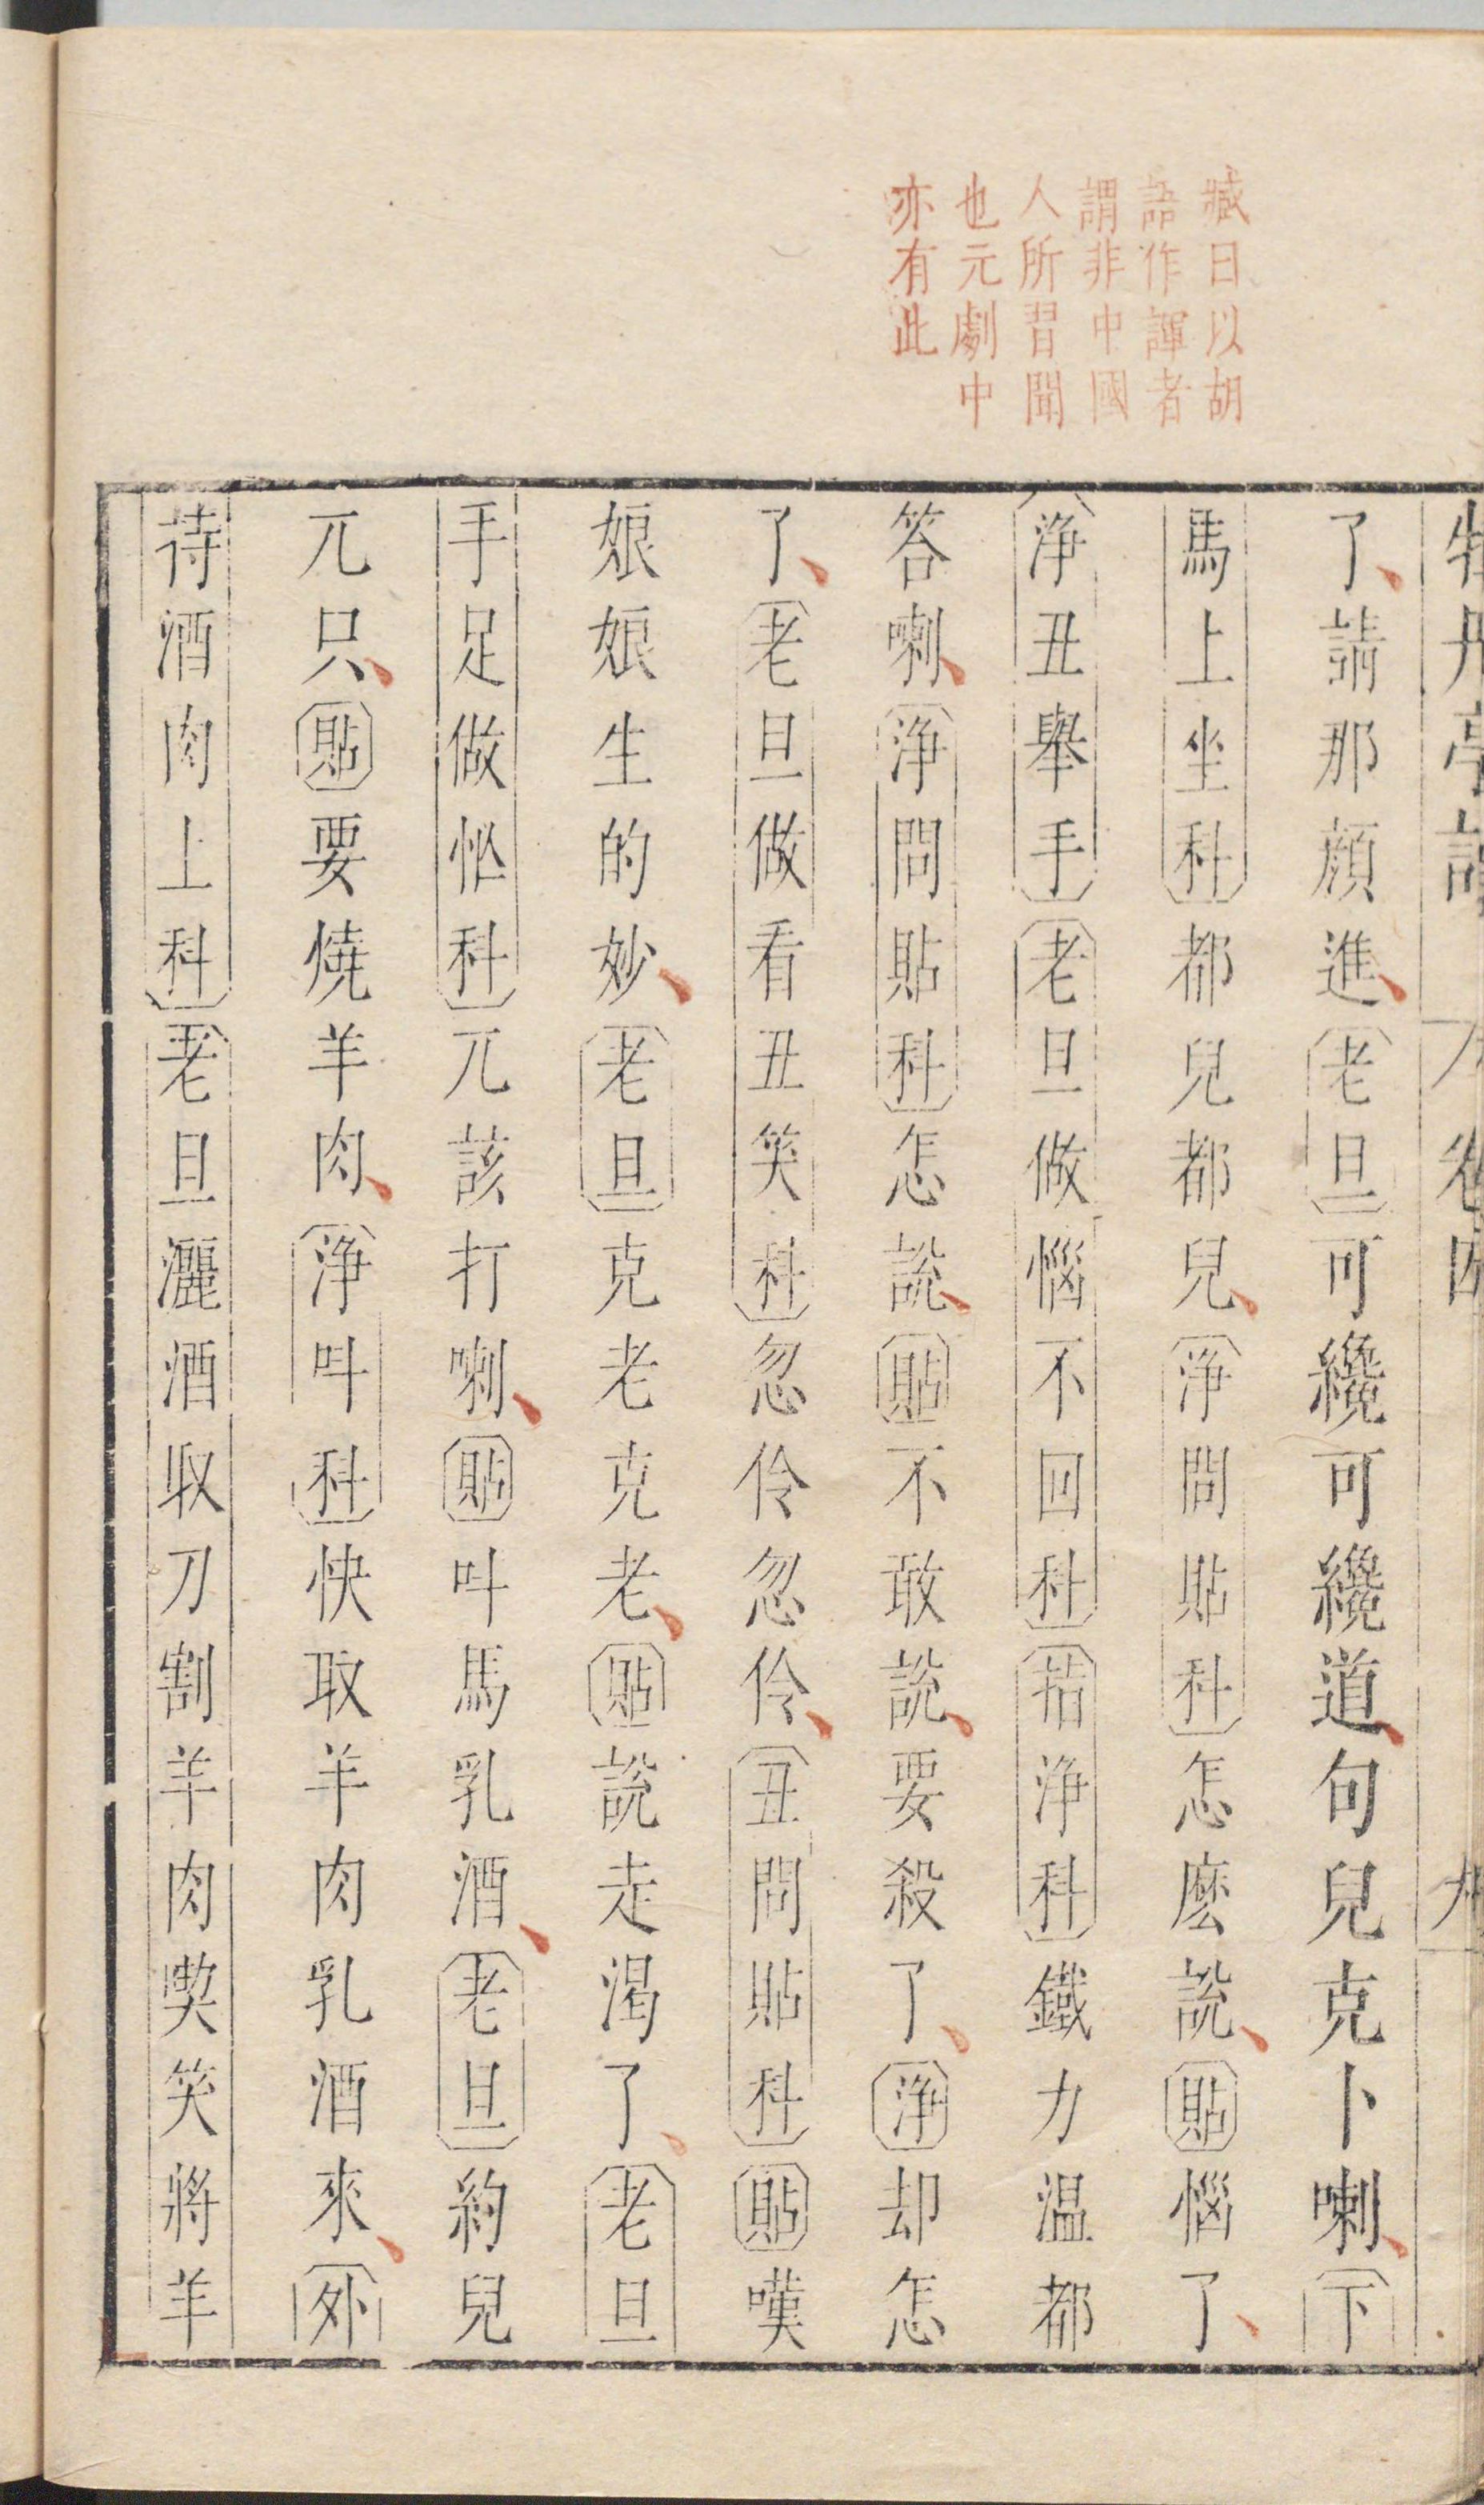 臧曰以胡
語作諢者
謂非中國
人所習聞
也元劇中
亦有此
牡丹亭記 卷四 九
了、請那顔進、老旦可纔可纔道、句兒克卜喇、下
馬上坐科都兒都兒、淨問貼科怎麽說、貼惱了、
淨丑舉手老旦做惱不回科指淨科鐵力温都
答喇、淨問貼科怎說、貼不敢說、要殺了、淨却怎
了、老旦做看丑笑科忽伶忽伶、丑問貼科貼嘆
娘娘生的妙、老旦克老克老、貼說走渴了、老旦
手足做忙科兀該打喇、貼叫馬乳酒、老旦約兒
兀只、貼要燒羊肉、淨叫科快取羊肉乳酒來、外
待酒肉上科老旦灑酒取刀割羊肉喫笑將羊